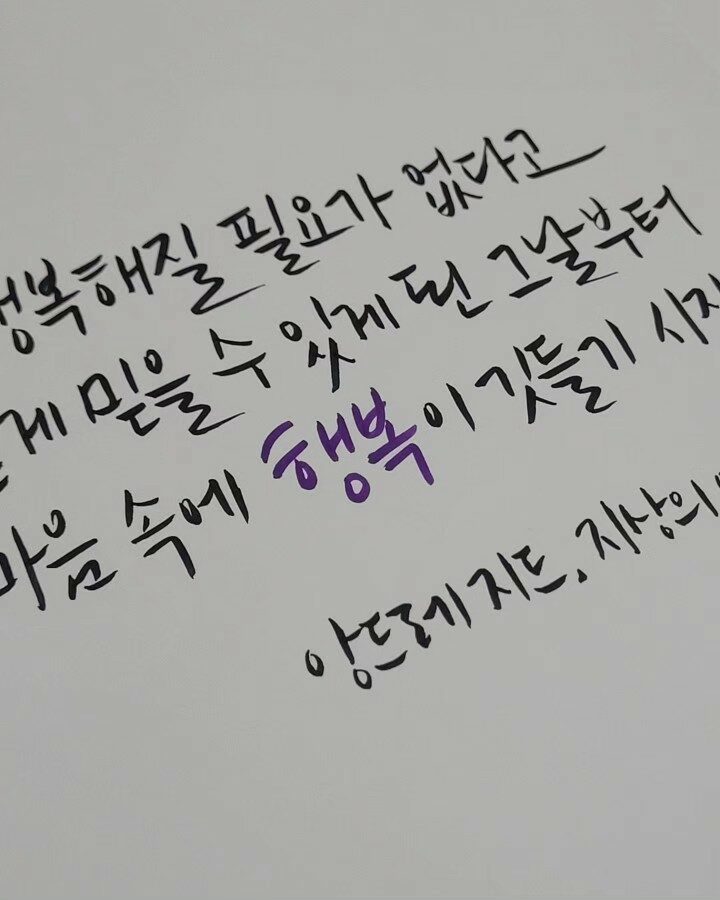 행복해질 필요가 없다고
게 믿을 수 있게 된 그날부터
마음 속에 행복이 깃들기 시
앙드레 지드, 지상의